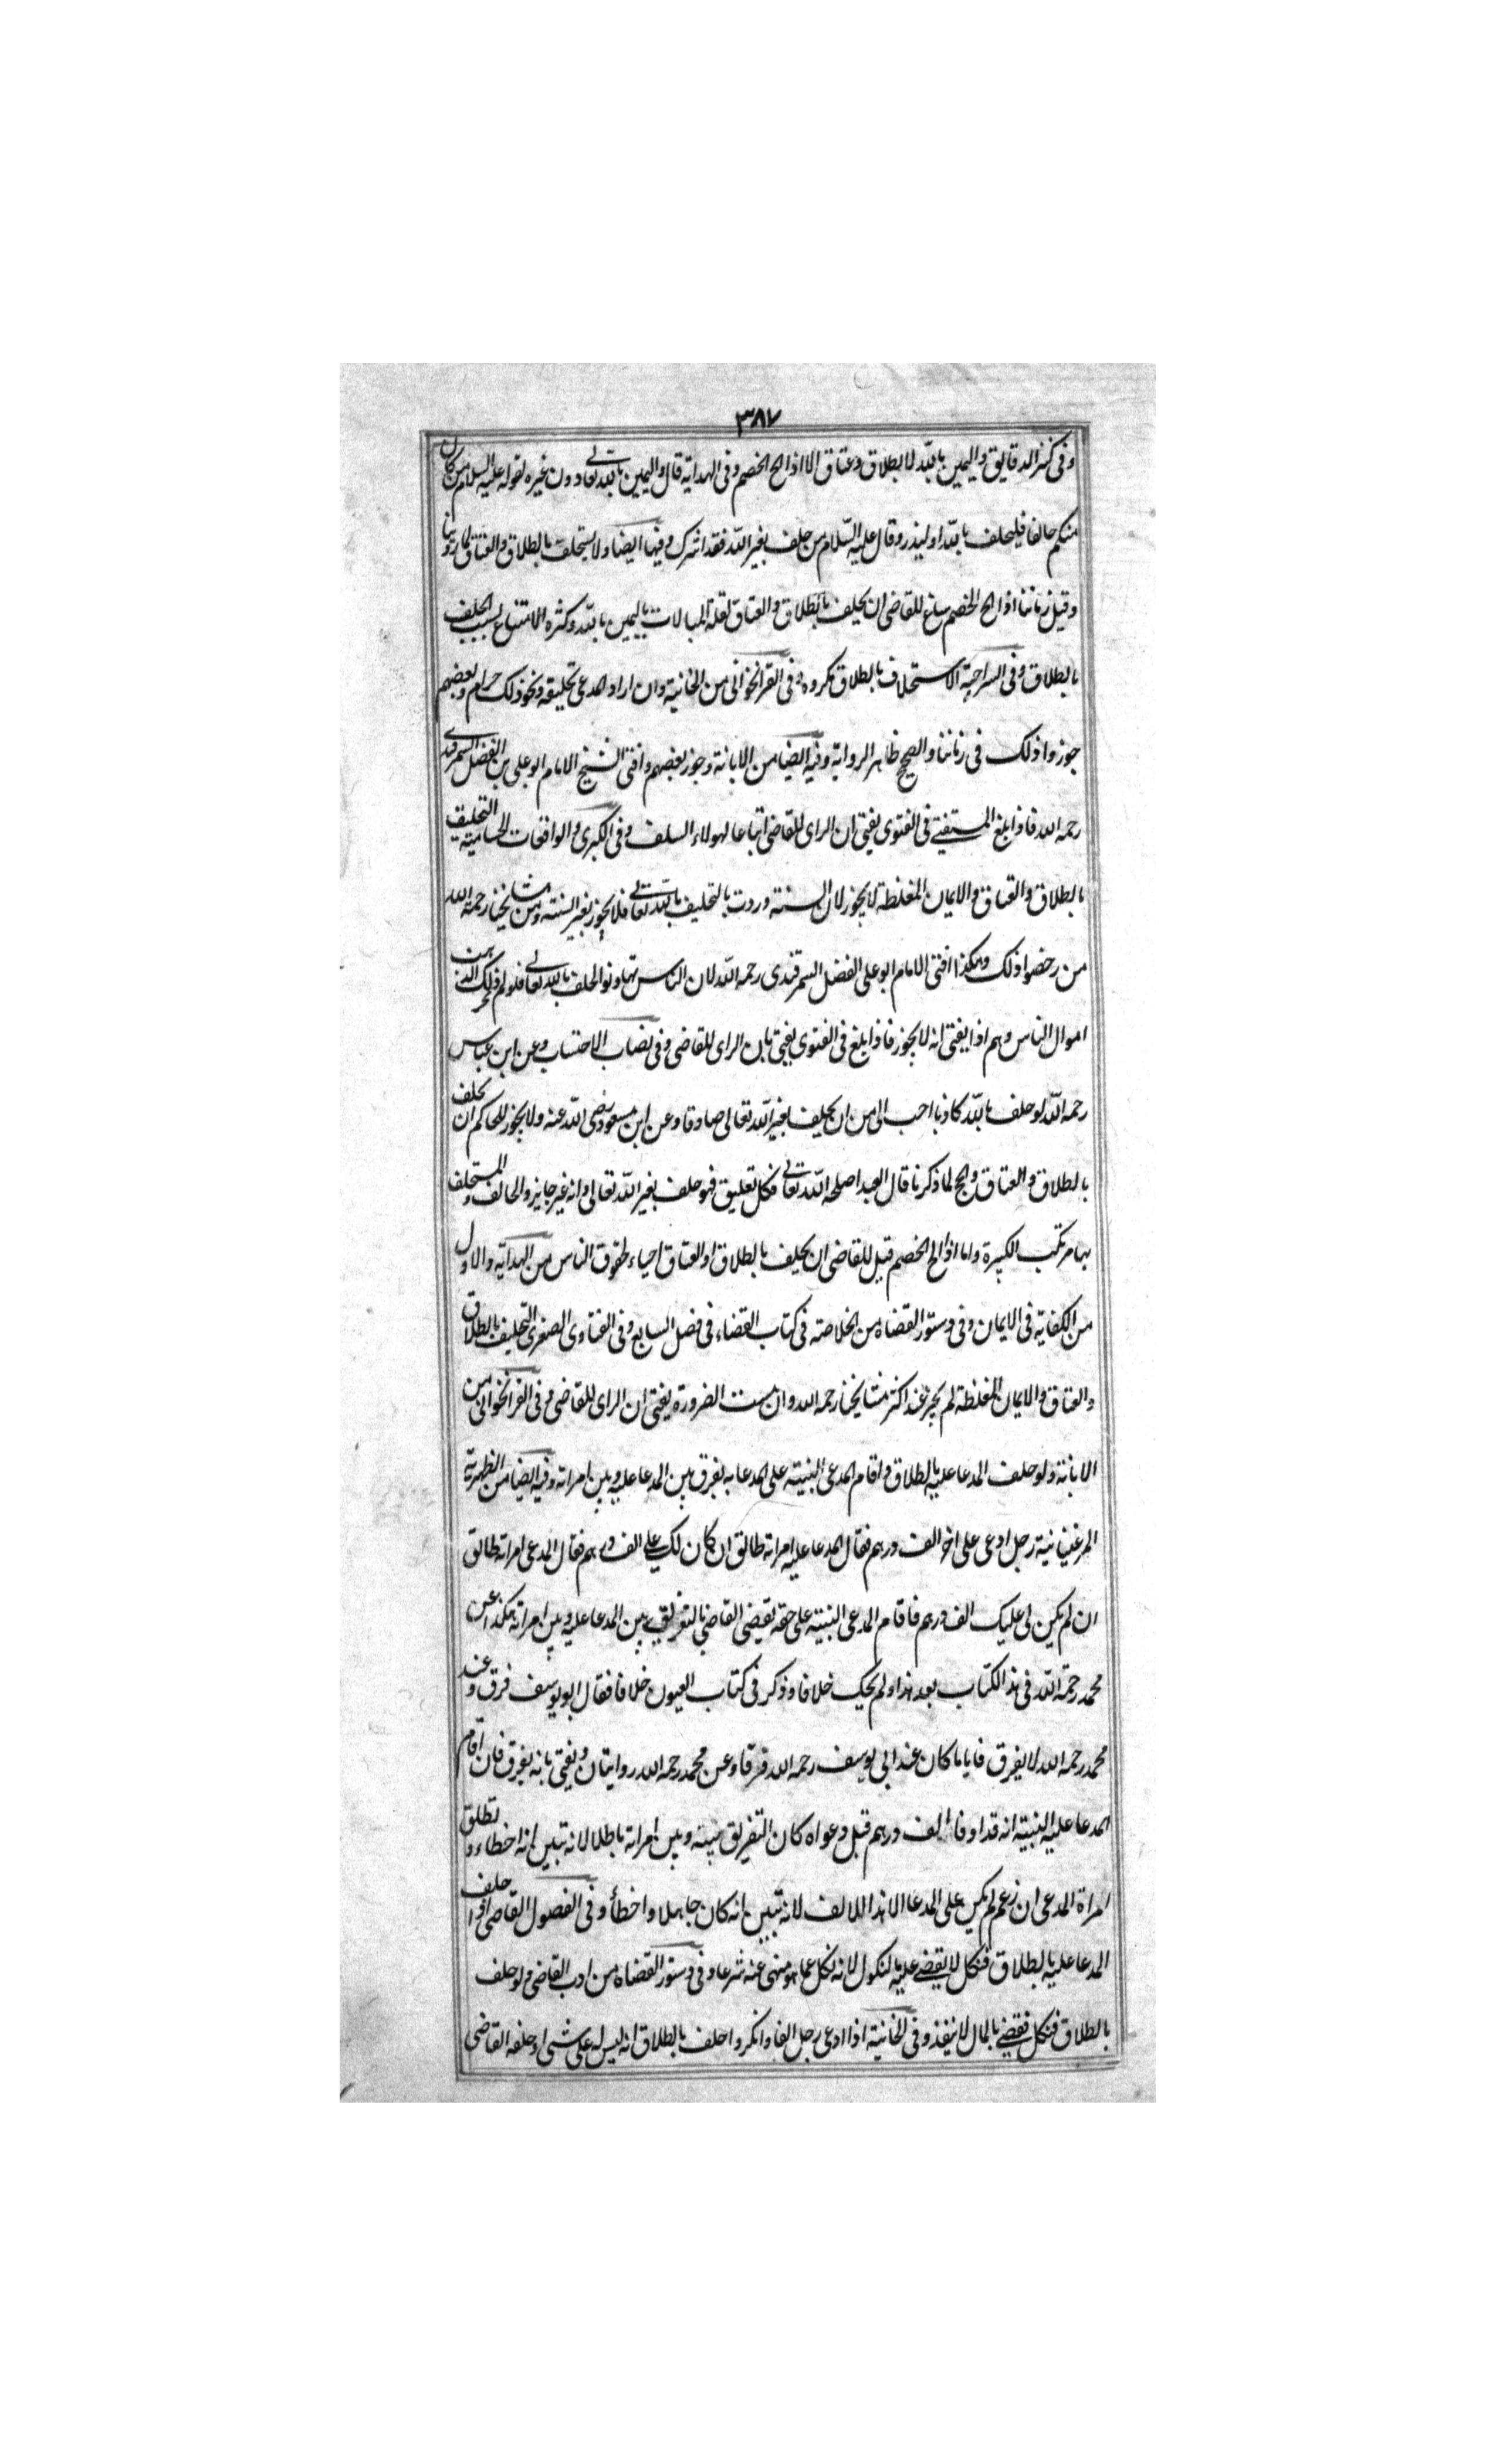 ٣٨٧
وفى كنز الدقايق واليمين بالله لا بطلاق وعتاق الا اذا الح الخصم وفى الهداية قال واليمين بالله تعالى دون غيره لقوله عليه السلام من كان
منكم حالفا فليحلف بالله او ليذر وقال عليه السّلام من حلف بغير اللّه فقد اشرك وفيها ايضا ولا يستحلف بالطلاق والعتاق لما روينا
وقيل زماننا اذا الح الخصم ساغ للقاضى ان يحلف بالطلاق والعتاق لقلة المبالات باليمين بالله وكثرة الامتناع بسبب الحلف
بالطلاق وفى السراجية الاستحلاف بالطلاق مكروه وفى القراخوانى من الخانية وان اراد المدعى تحليفه ونحو ذلك حرام وبعضهم
جوزوا ذلك فى زماننا والصحيح ظاهر الرواية وفيه ايضا من الابانة وجوز بعضهم وافتى الشيخ الامام ابو على بن الفضل السمرقندى
رحمه الله فاذا بلغ المستفتى فى الفتوى يفتى ان الراى للقاضى اتباعا لهولاء السلف وفى الكبرى والواقعات الحسامية التحليف
بالطلاق والعتاق والايمان المغلظة لا يجوز لان السنة وردت بالتحليف بالله تعالى فلا يجوز بغير السنة ومن مشايخنا رحمه الله
من رخصوا ذلك وهكذا افتى الامام ابو على الفضل السمرقندى رحمه الله لان الناس تهاونوا الحلف بالله تعالى فلو لم
اموال الناس وهم اذا يفتى انه لا يجوز فاذا بلغ فى الفتوى يفتى بان الراى للقاضى وفى نصاب الاحتساب وعن ابن عباس
رحمه اللّه لو حلف بالله كاذبا احب الى من ان يحلف بغير اللّه تعالى صادقا وعن ابن مسعود رضى اللّه عنه ولا يجوز للحاكم ان يحلف
بالطلاق والعتاق والحج لما ذكرنا قال العبد اصلحه اللّه تعالى فكل تعليق فهو حلف بغير اللّه تعالى وانه غير جايز والحالف والمستحلف
بهما مرتكب الكبيرة واما اذا الح الخصم قيل للقاضى ان يحلف بالطلاق او العتاق احياء لحقوق الناس من الهداية والاول
من الكفاية فى الايمان وفى دستور القضاة من الخلاصة فى كتاب القضاء فى فصل السابع وفى الفتاوى الصغرى التحليف بالطلاق
والعتاق والايمان المغلظة لم يجز عند اكثر مشايخنا رحمه الله وان مست الضرورة يفتى ان الراى للقاضى وفى القراخوانى من
الابانة ولو حلف المدعا عليه بالطلاق واقام المدعى البينة على المدعا به يفرق بين المدعا عليه وبين امراته وفيه ايضا من الظهيرية
المرغنيانية رجل ادعى على اخر الف درهم فقال المدعا عليه امراته طالق ان كان لك على الف درهم فقال المدعى امراته طالق
ان لم يكن لى عليك الف درهم فاقام المدعى البينة على حقه يقضى القاضى بالتفريق بين المدعا عليه وبين امراته هكذا عن
محمد رحمة اللّه فى هذا الكتاب بعد هذا ولم يحك خلافا وذكر فى كتاب العيون خلافا فقال ابو يوسف فرق وعند
محمد رحمه الله لا يفرق فاياما كان عند ابى يوسف رحمه الله فرقا وعن محمد رحمه الله روايتان ويفتى بانه يفرق فان اقام
المدعا عليه البينة انه قد اوفا الف درهم قبل دعواه كان التفريق بينه وبين امراته باطلا لانه تبين انه اخطاء وتطلق
امراة المدعى ان زعم لم يكن على المدعا الا هذا اللالف لانه تبين انه كان جاهلا واخطأ وفى الفصول القاضى اذا حلف
المدعا عليه بالطلاق فنكل لا يقضى عليه بالنكول لانه نكل عما هو منهى عنه شرعا وفى دستور القضاة من ادب القاضى ولو حلف
بالطلاق فنكل فقضى بالمال لا ينفذ وفى الخانية اذا ادعى رجل الفا وانكر واحلف بالطلاق انه ليس له على شى او حلفه القاضى